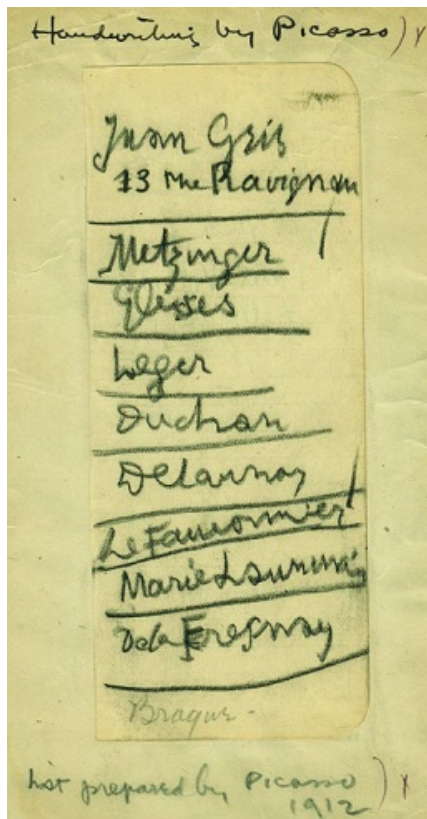 Handwriting by Picasso) x
Juan Gris
13 rue Ravignan
Metzinger
Gleises
Leger
Duchan
Delaunay
Le Fauconnier
Marie Laurencin
De la Fresnay
Braque -
List prepared by Picasso) x
1912